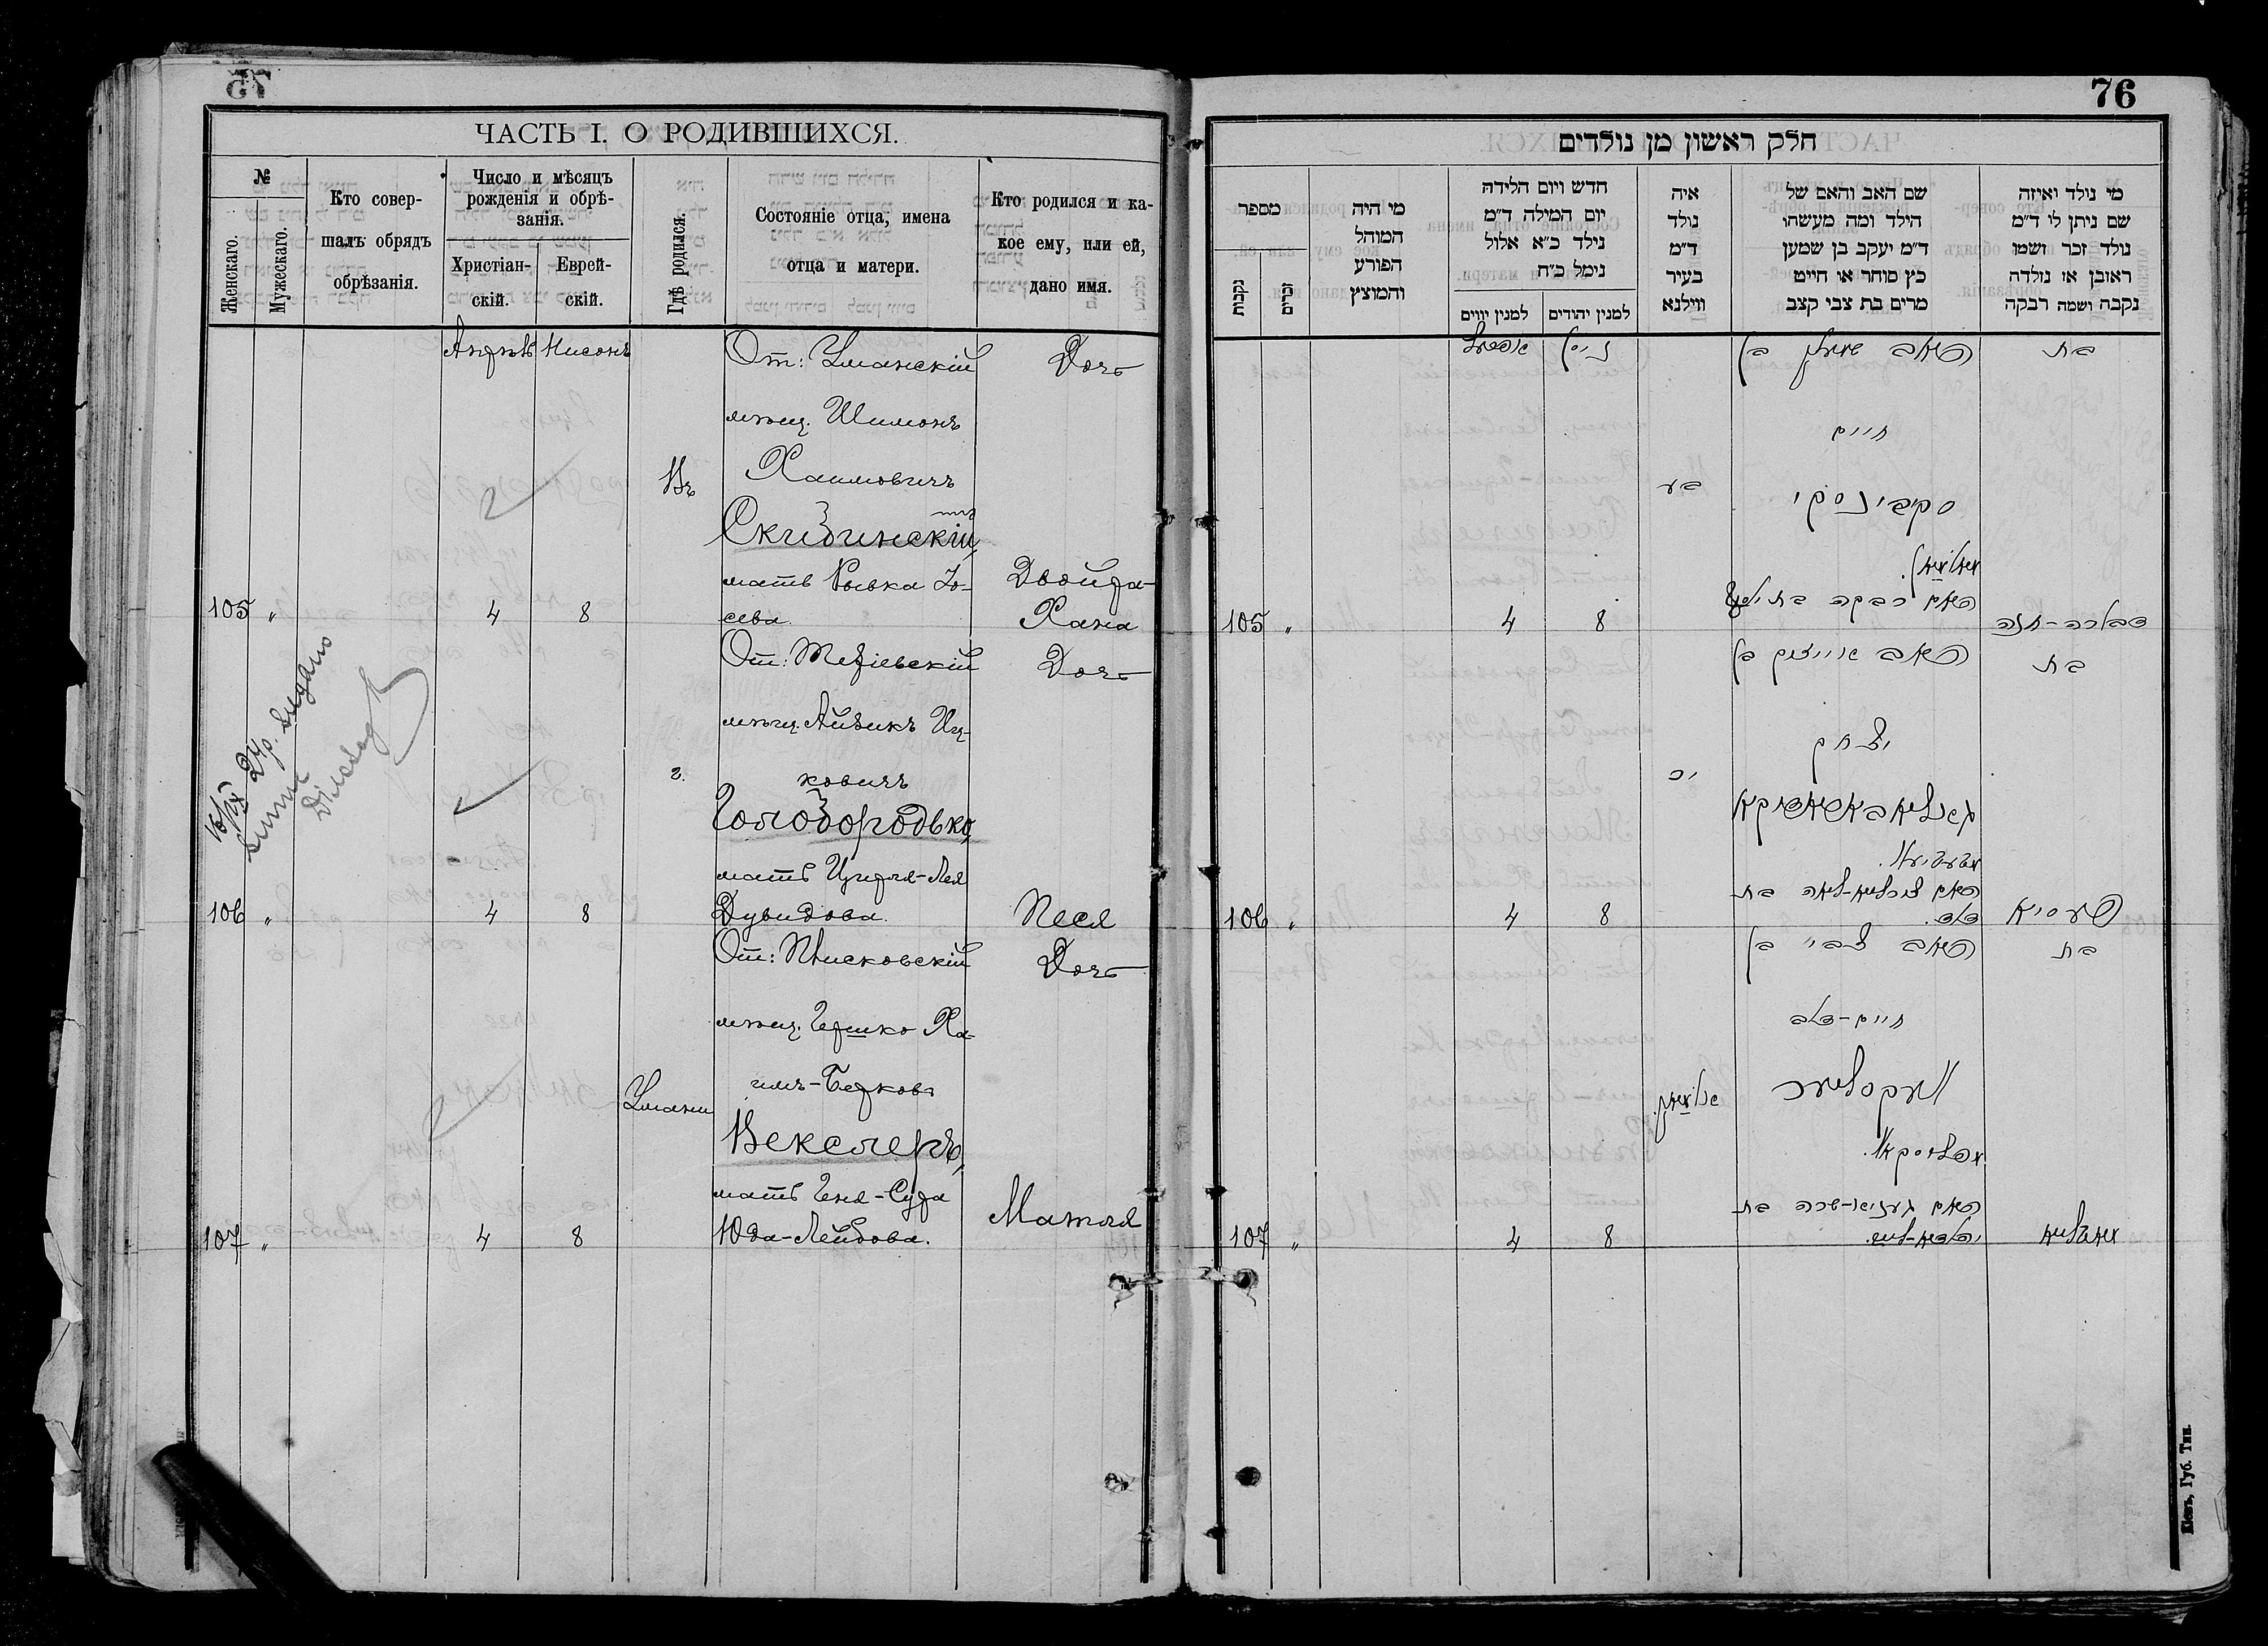 75
ЧАСТЬ I. О РОДИВШИХСЯ.
№
Женскаго.
Мужескаго.
Кто совер-
шалъ обрядъ
обрѣзанія.
Число и мѣсяцъ
рожденія и обрѣ-
занія.
Христіан-
скій.
Еврей-
скій.
Гдѣ родился.
Состояніе отца, имена
отца и матери.
Кто родился и ка-
кое ему, или ей,
дано имя.
Апрѣль Нисонъ
От: Уманскій
Дочь
мѣщ. Шимонъ
Въ
Хаимовичъ
Скидинскій,
мать Рывка Іо-
сева.
Двойра-
Хана
105 " 4 8
От: Тетіевскій
Дочь
мѣщ. Айзикъ Иц-
г.
ковичъ
Голобородько,
мать Цирля-Лея
Дувидова.
106 " 4 8
Песя
От: Пѣисковскій
Дочь
мѣщ. Гершко Ха-
имъ-Берковъ
Умани
Векслеръ,
мать Геня-Сура
Юда-Лейбова.
107 " 4 8
Матля
76
חלק ראשון מן נולדים
מספר
נקבות
זכרים
מי היה
המוהל
הפורע
והמוצץ
חדש ויום הלידה
יום המילה ד״מ
נילד כ״א אלול
נימל כ״ח
למנין יווים
למנין יהודים
איה
נולד
ד״מ
בעיר
ווילנא
שם האב והאם של
הילד ומה מעשהו
ד״מ יעקב בן שמען
כץ סוחר או חייט
מרים בת צבי קצב
מי נולד ואיזה
שם ניתן לו ד״מ
נולד זכר ושמו
ראובן או נולדה
נקבה ושמה רבקה
אפריל
ניסן
האב שמעון בן
בת
חיים
בע
סקבינסקי
מאומאן.
האם רבקה בת יוסף
105 " 4 8
דבורה-חנה
האב אייזיק בן
בת
יצחק
יר
גאלאבאראדקא
האם צירליא-לאה בת
דוד.
106 " 4 8
פעסיא
האב צבי בן
בת
חיים-דוב
אומאן.
וועקסלער
האם געניא-שרה בת
יודא-ליב.
107 " 4 8
מאטליא
Кіевъ, Губ. Тип.